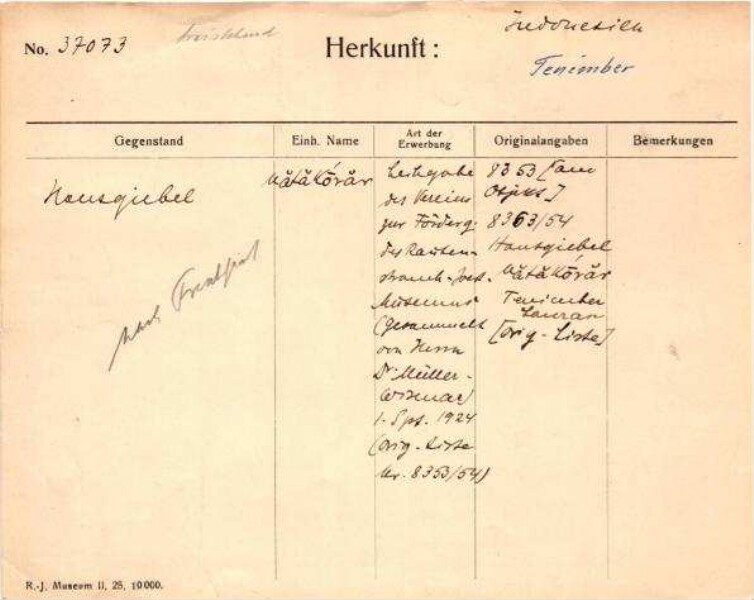 No. 37073
Herkunft:
Indonesien
Tenimber
Gegenstand
Einh. Name
Art der Erwerbung
Originalangaben
Bemerkungen
Hausgiebel
nach Frankfurt
Leihgabe
des Vereins
zur Förderg.
des Rauten-
strauch-Joest-
Museums
(Gesammelt
von Herrn
Dr. Müller-
Wismar)
1. Spt. 1924
(Orig.-Liste
Nr. 8353/54)
8363 [am
Objekt]
8363/54
Hausgiebel
Tenimber
[Orig-Liste]
R.-J. Museum II, 25, 10000.